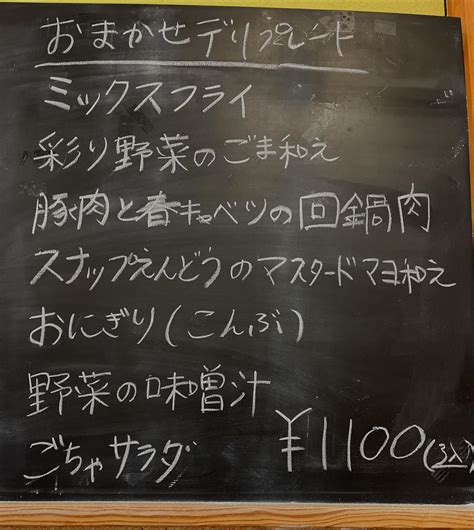 おまかせデリプレート
ミックスフライ
彩り野菜のごま和え
豚肉と春キャベツの回鍋肉
スナップえんどうのマスタードマヨ和え
おにぎり(こんぶ)
野菜の味噌汁
ごちゃサラダ
¥1100(税込)